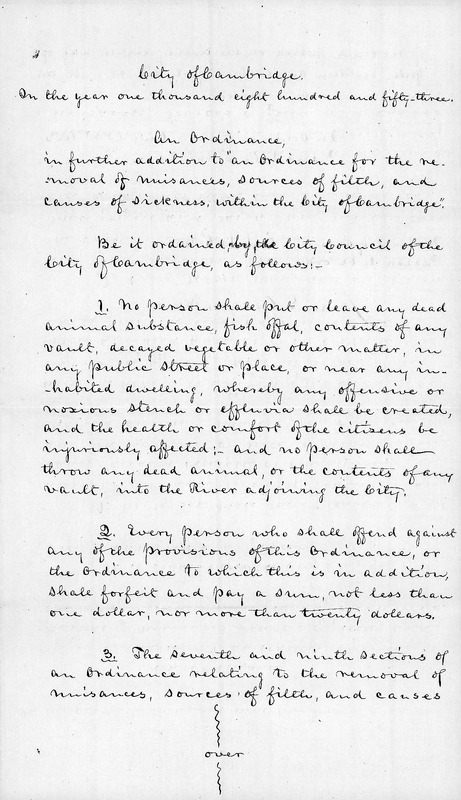 City of Cambridge.
In the year one thousand eight hundred and fifty-three.
An Ordinance,
in further addition to "an Ordinance for the re-
-moval of nuisances, sources of filth, and
causes of sickness, within the City of Cambridge".
Be it ordained, by the City Council of the
City of Cambridge, as follows:-
1. No person shall put or leave any dead
animal substance, fish offal, contents of any
vault, decayed vegetable or other matter, in
any public street or place, or near any in-
-habited dwelling, whereby any offensive or
noxious stench or effluvia shall be created,
and the health or comfort of the citizens be
injuriously affected;- and no person shall
throw any dead animal, or the contents of any
vault, into the River adjoining the City.
2. Every person who shall offend against
any of the provisions of this Ordinance, or
the Ordinance to which this is in addition,
shall forfeit and pay a sum, not less than
one dollar, nor more than twenty dollars.
3. The seventh and ninth sections of
an Ordinance relating to the removal of
nuisances, sources of filth, and causes
over